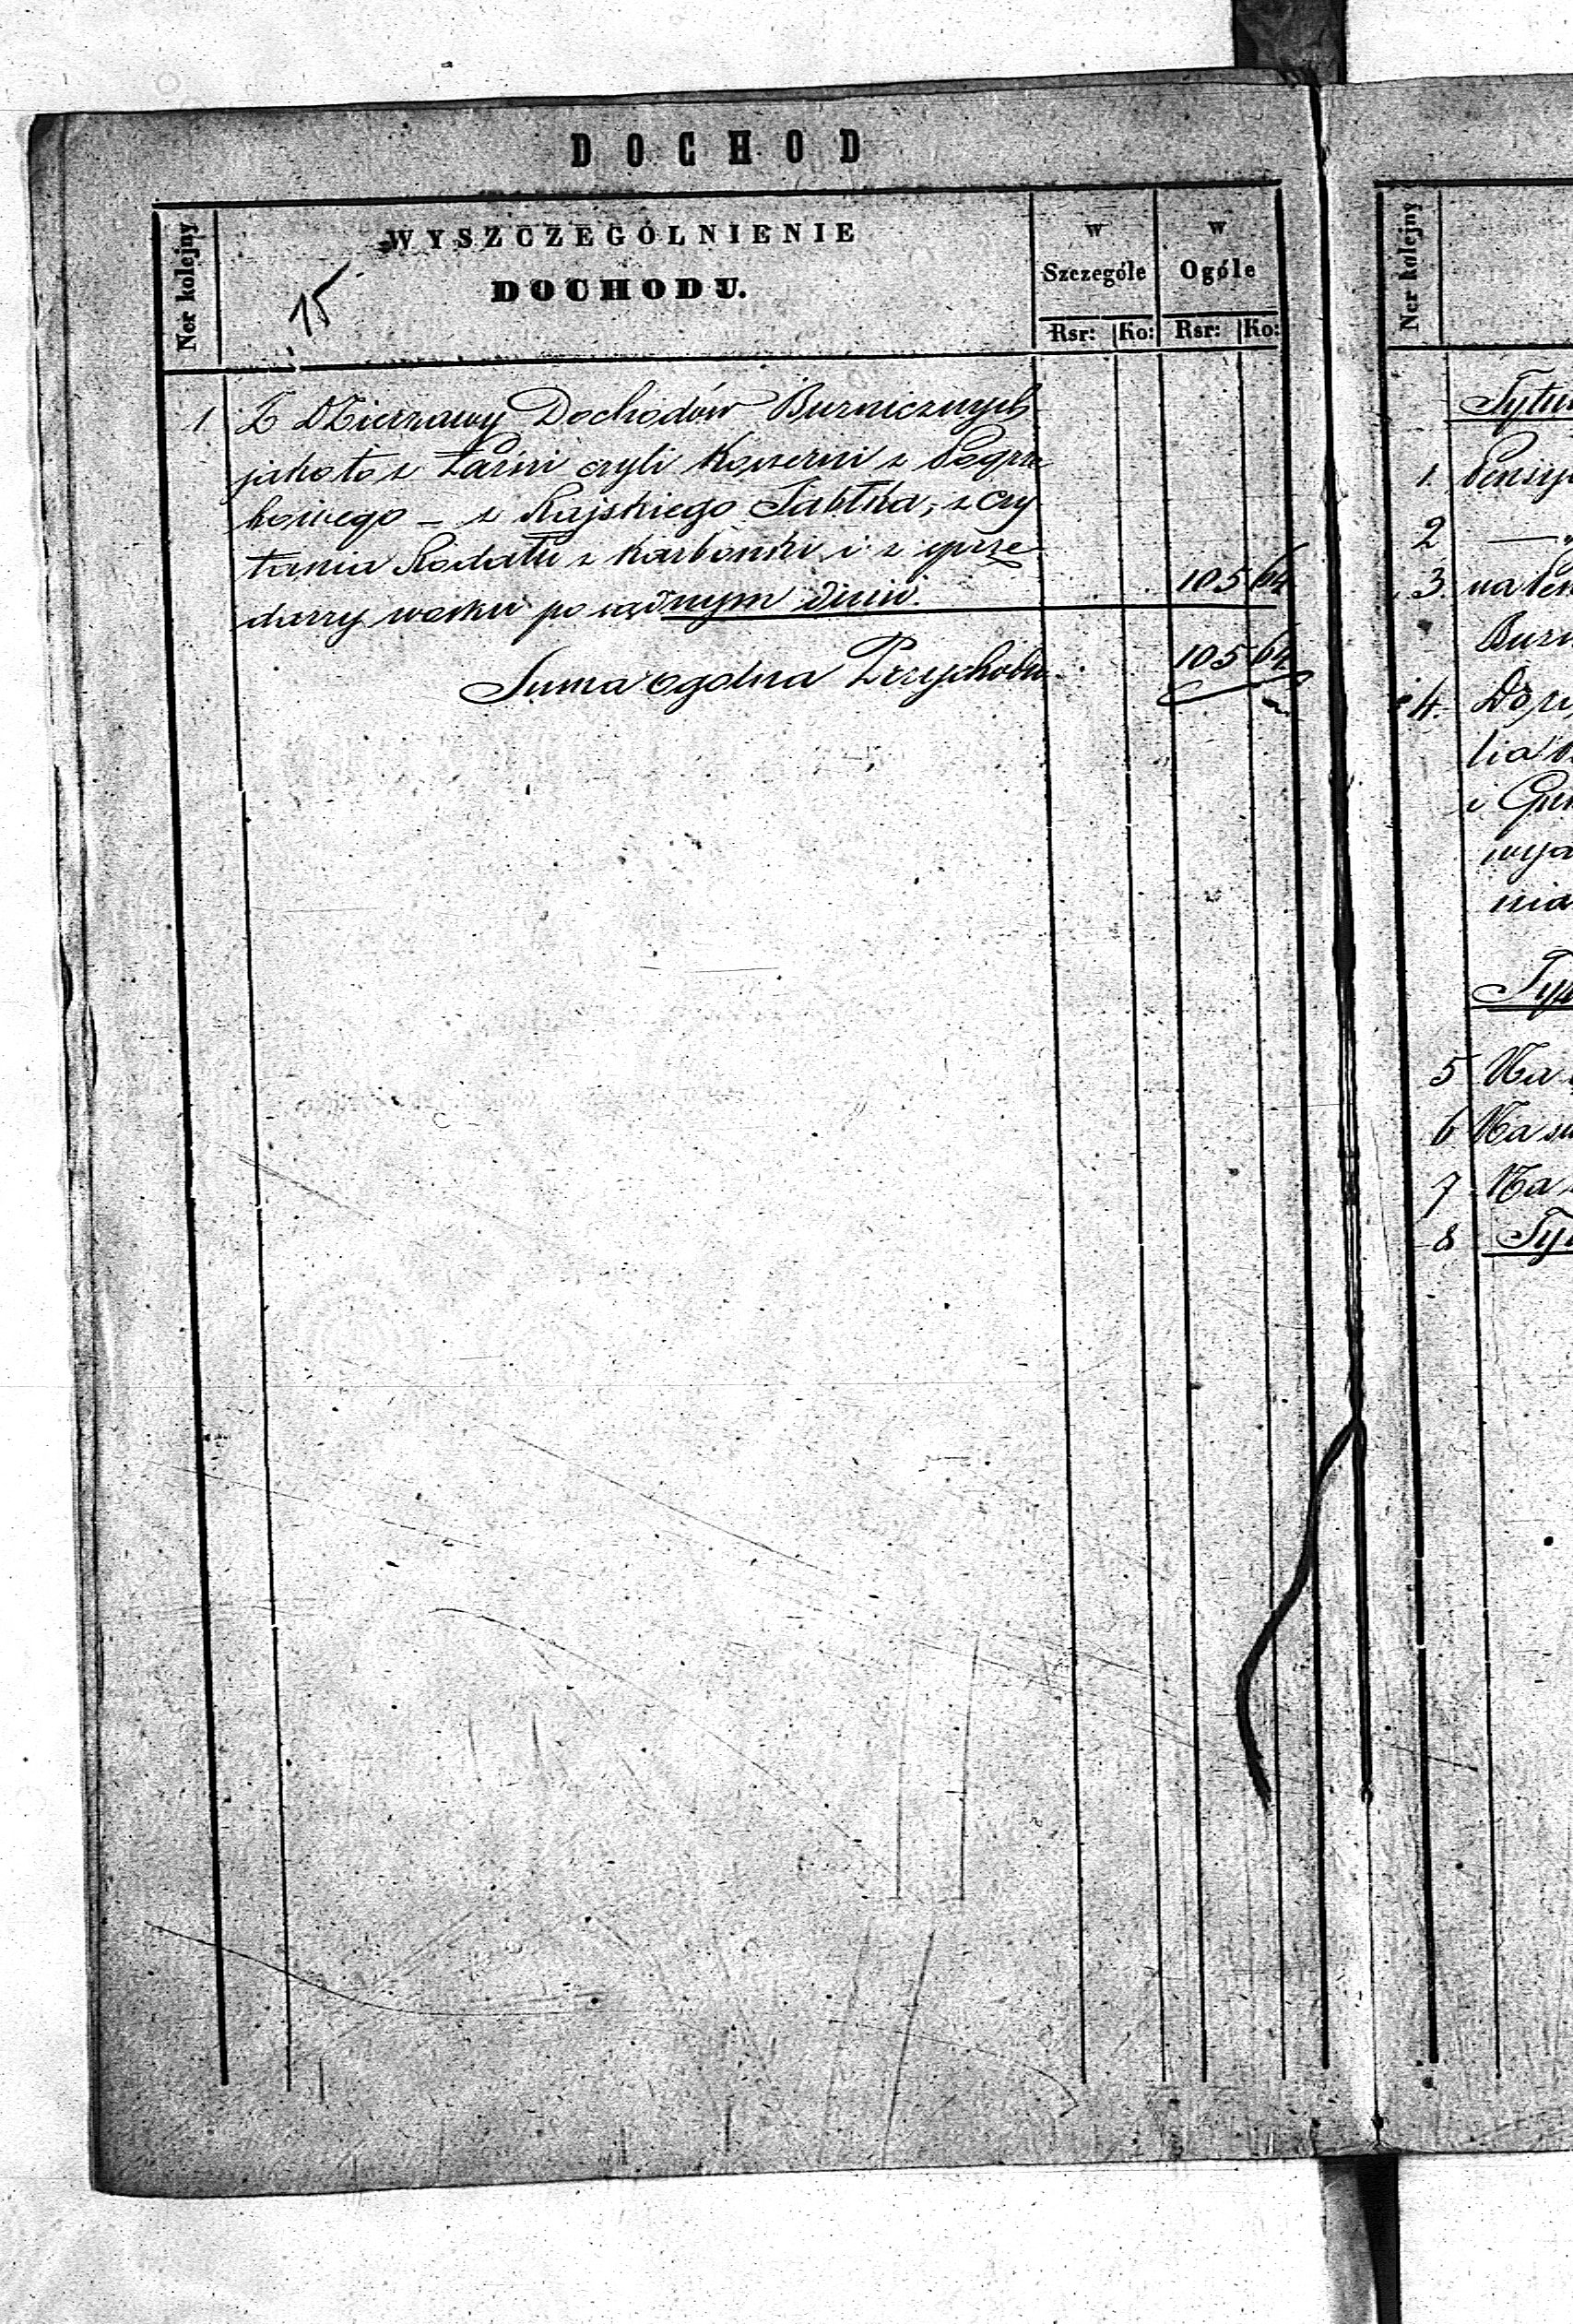 DOCHOD
Ner kolejny
WYSZCZEGÓLNIENIE
DOCHODU.
15
w
Szczególe
w
Ogóle
Rsr: Ko: Rsr: Ko:
1 Z Dzierzawy Dochodów Buznicznych
jako to z Łaźni czyli Koszerni z Pogrze
bowego – z Rajskiego Jabłka, z czy
tania Rodału z Karbonki i z sprze
darzy wosku po sądnym dniu. 105 64
Suma ogolna Przychodu 105 64
Ner kolejny
Tytu
1. Pensy
2 —
3. na
Buzn
4.
i
nia
Ty
5 Na
6 Na
7 Na
8 Ty